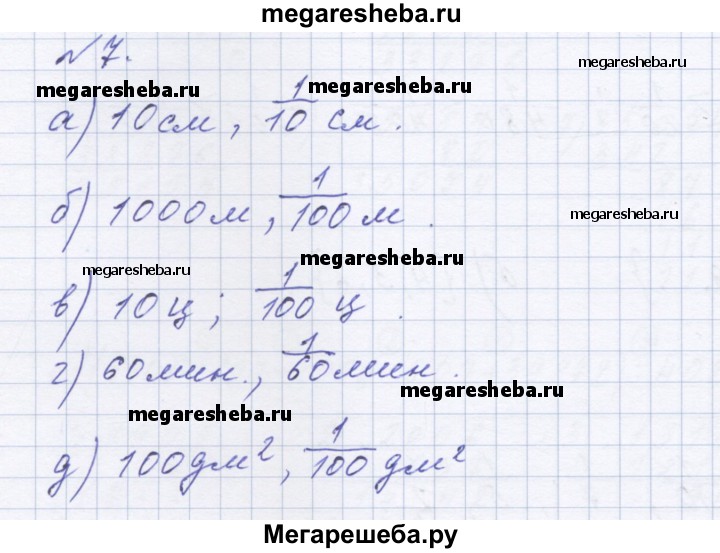 megaresheba.ru
№ 7.
megaresheba.ru
megaresheba.ru
megaresheba.ru
а) 10 см, 1/10 см.
б) 1000 м, 1/100 м.
megaresheba.ru
megaresheba.ru
megaresheba.ru
в) 10 ц; 1/100 ц.
г) 60 мин., 1/60 мин.
megaresheba.ru
megaresheba.ru
д) 100 дм², 1/100 дм²
Мегарешеба.ру